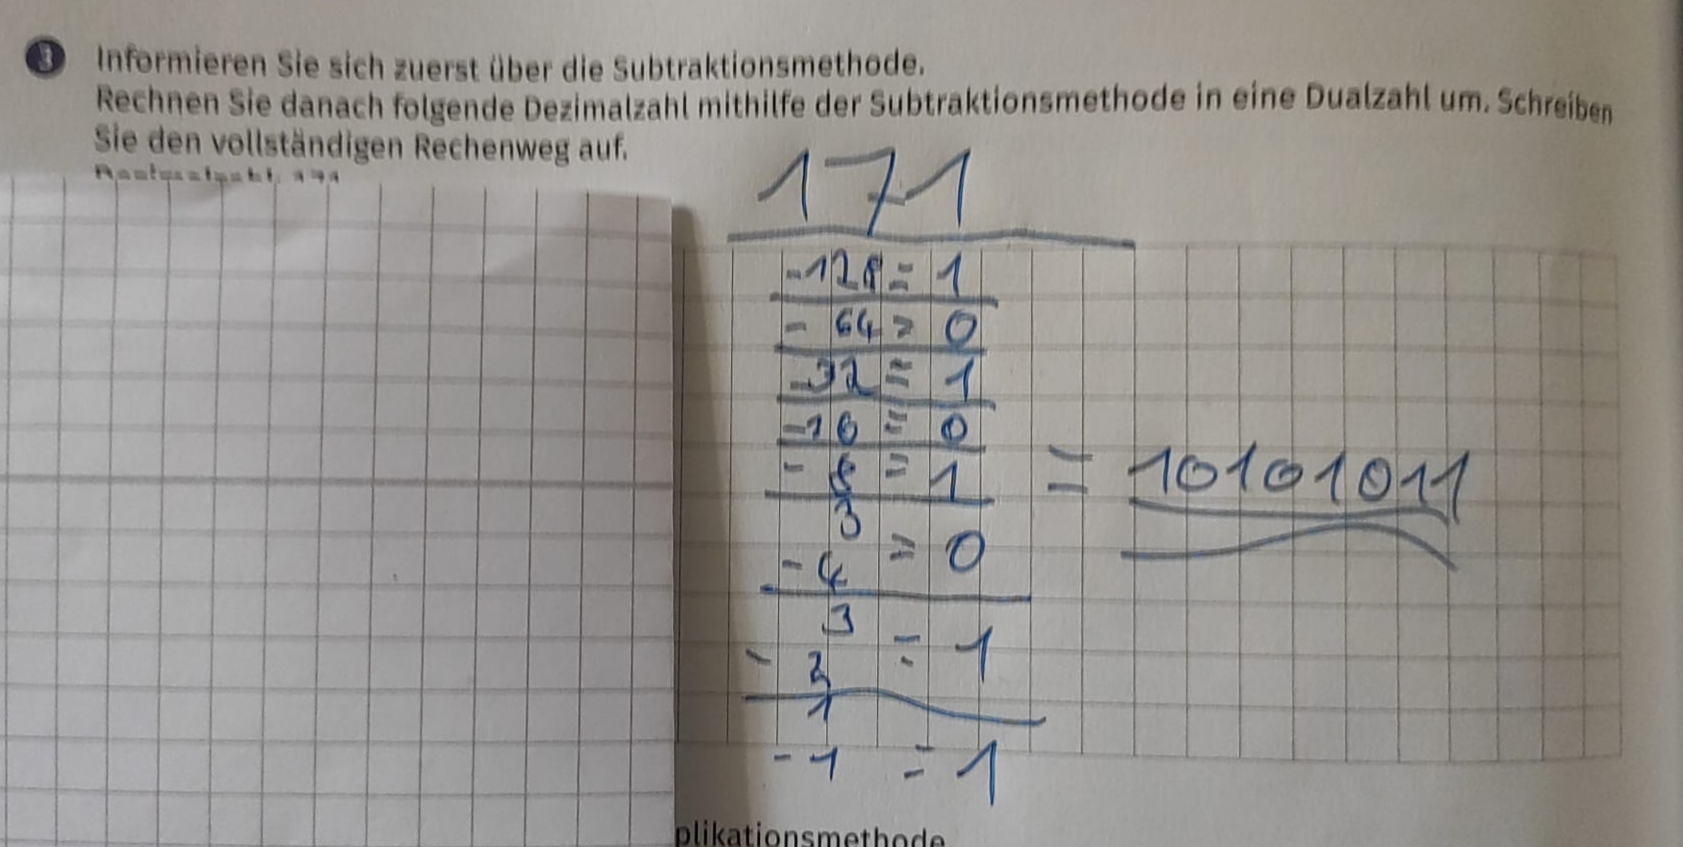 3 Informieren Sie sich zuerst über die Subtraktionsmethode.
Rechnen Sie danach folgende Dezimalzahl mithilfe der Subtraktionsmethode in eine Dualzahl um. Schreiben
Sie den vollständigen Rechenweg auf.
171
-128 = 1
- 64 = 0
-32 = 1
-16 = 0
- 8 = 1
3
- 4 = 0
3
- 2 = 1
1
-1 = 1
= 10101011
plikationsmethode